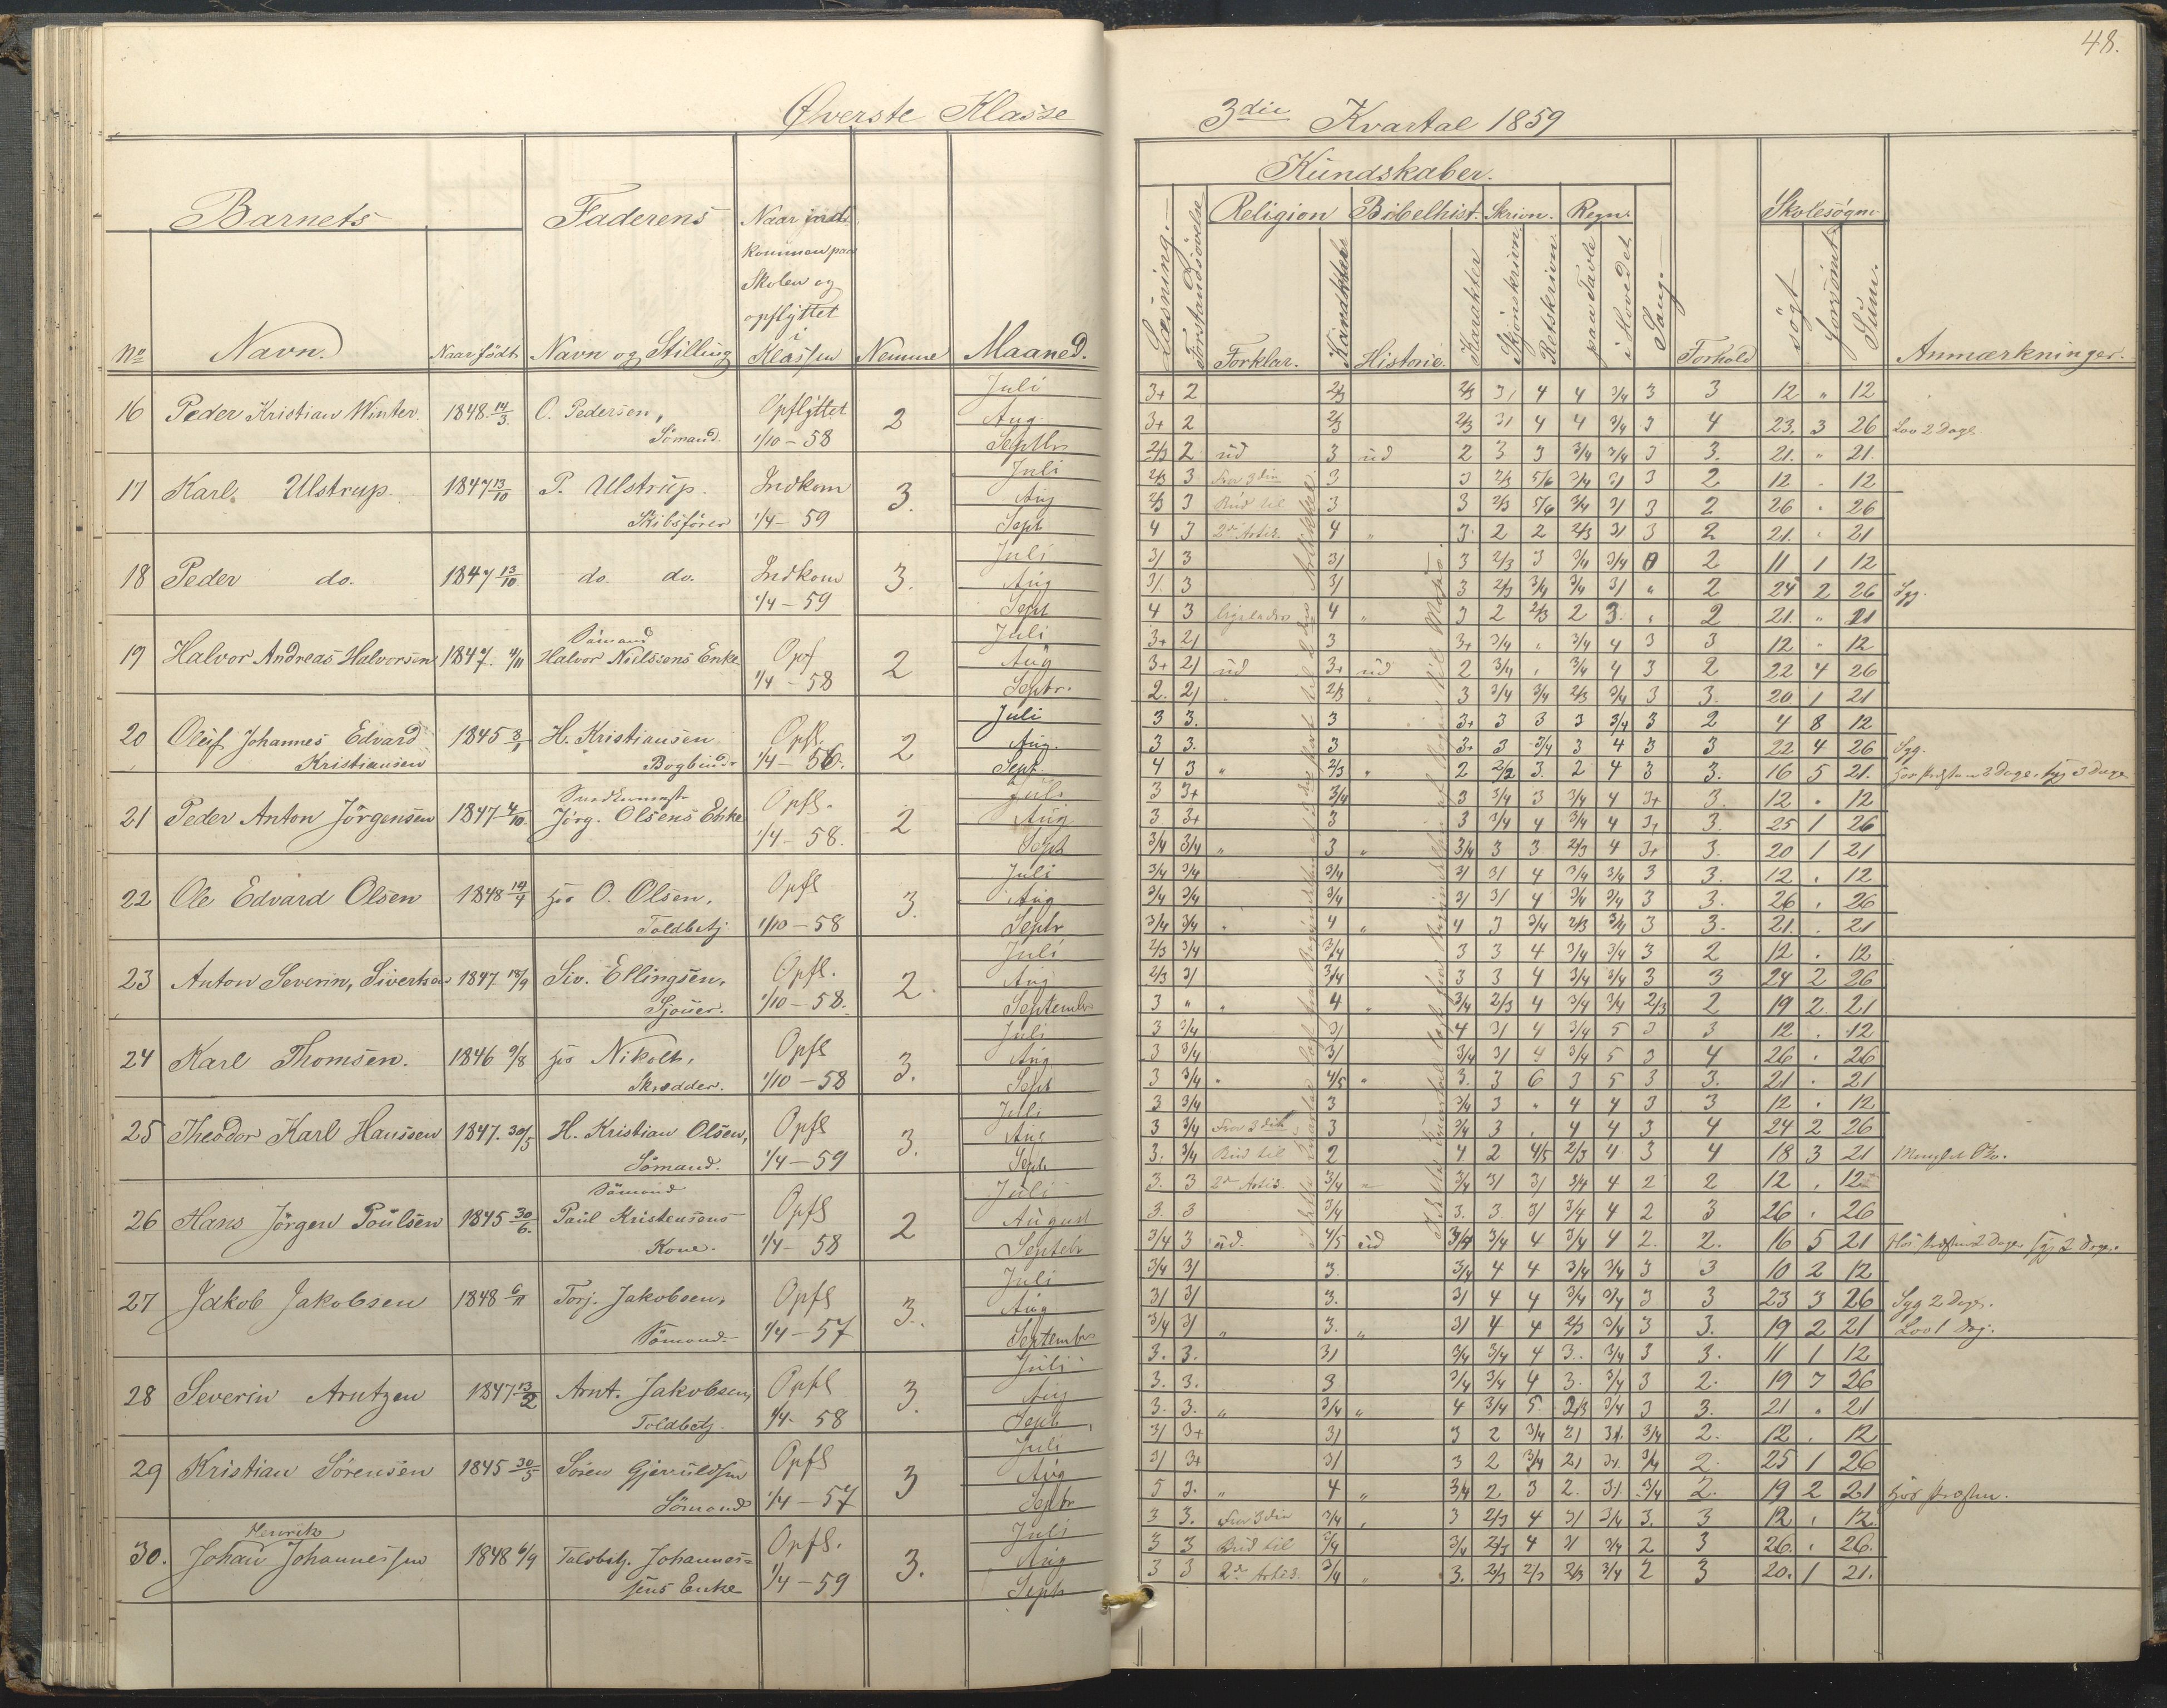 Øverste Klasse
Barnets
Faderens
Naar ind-
kommen paa
Skolen og
opflyttet
i
No
Navn.
Naar født
Navn og Stilling
Klassen
Nemme
Maaned.
16 Peder Kristian Winter. 1848. 14/3. O. Pedersen, Opflyttet 2 Juli
Sömand. 1/10 - 58 Aug.
Septbr
17 Karl Ulstrup. 1847 13/10 P. Ulstrup. Indkom 3. Juli
Skibsförer 1/4 - 59 Aug
Sept
18 Peder do. 1847 13/10 do. do. Indkom 3. Juli
1/4 - 59 Aug
Sept
Sömand
19 Halvor Andreas Halvorsen 1847. 4/11 Halvor Nielssens Enke Opf 2 Juli
1/4 - 58 Aug
Septbr.
20 Oluf Johannes Edvard 1845 3/1 H. Kristiansen Opfl. 2 Juli
Kristiansen Bogbindr 1/4 - 56. Aug.
Sept.
21 Peder Anton Jörgensen 1847 4/10 Jörg. Olsens Enke Opfl. 2 Juli
1/4 - 58. Aug
Sept
22 Ole Edvard Olsen 1848 19/4 hos O. Olsen, Opfl 3. Juli
Toldbetj. 1/10 - 58 Aug
Septr
23 Anton Severin, Sivertsen 1847 18/9 Siv. Ellingsen, Opfl. 2. Juli
Sjouer. 1/10 - 58. Aug
Septembr
24 Karl Thomsen. 1846 9/8 hos Nikolth, Opfl 3. Juli
Skrædder. 1/10 - 58 Aug
Sept
25 Theodor Karl Hanssen 1847. 30/5 H. Kristian Olsen, Opfl 3. Juli
Sömand. 1/4 - 59 Aug
Sept
Sömand
26 Hans Jörgen Poulsen 1845 30/6. Paul Kristensens Opfl 2 Juli
Kone. 1/4 - 58 August
Septebr
27 Jakob Jakobsen 1848 6/11 Torj. Jakobsen, Opfl 3. Juli
Sömand. 1/4 - 57 Aug
Septembr
28 Severin Arntzen 1847. 13/2 Arnt. Jakobsen, Opfl 3. Juli
Toldbetj. 1/4 - 58 Aug
Sept
29 Kristian Sörensen 1845 30/5 Sören Gjerruldsen Opfl 3 Juli
Sömand 1/4 - 57 Aug
Septbr
Henrik
30. Johan Johannessen 1848 6/9 Toldbetj. Johannes= Opfl. 3. Juli
sens Enke 1/4 - 59 Aug
Septr
48.
3die Kvartal 1859
Kundskaber.
Læsning.
Forstandsövelse
Religion
Bibelhist.
Skrivn.
Regn.
Sang.
Skolesøgn.
Forklar.
Karakter
Historie.
Karakter
Skjönskrivn.
Retskrivn.
paa Tavle
i Hovedet
Forhold
søgt
forsömt
Sum.
Anmærkninger.
3+ 2 2/3 2/3 31 4 4 3/4 3 3 12 " 12
3+ 2 2/3 2/3 31 4 4 3/4 3 4 23. 3 26 Lov 2 Dage.
2/3 2 ud 3 ud 2 3 3 3/4 3/4 3 3. 21. " 21.
2/3 3 Fra 3die 3 3 2/3 5/6 3/4 31 3 2 12 . 12
2/3 3 Bud til 3 3 2/3 5/6 3/4 31 3 2 26 . 26
4 3 2d Artik. 4 " 3. 2 2 2/3 31 3 2 21. . 21
31 3 31 3 2/3 3 3/4 3/4 0 2 11 1 12
31. 3 31 3 2/3 3/4 3/4 31 " 2 24 2 26 Syg.
4 3 ligeledes 4 " 3 2 2/3 2 3. . 2 21. " 21
3+ 21 3 3+ 3/4 . 3/4 4 3 3 12 . 12
3+ 21 ud 3+ ud 2 3/4 . 3/4 4 3 2 22 4 26
2. 21 2/3 3 3/4 3/4 2/3 3/4 3 3. 20 1 21
3 3. 3 3+ 3 3 3 3/4 3 2 4 8 12
3 3. 3 3+ 3 3/4 3 4 3 3 22 4 26 Syg.
4 3 " 2/3 " 2 2/2 3. 2 4 3 3. 16 5 21. hos Præsten 2 Dage, syg 3 Dage
3 3+ 3/4 3 3/4 3 3/4 4 3+ 3. 12 . 12
3 3+ 3 3 3/4 4 3/4 4 3+ 3. 25 1 26
3/4 3/4 " 3 " 3/4 3 3 2/3 4 3+ 3. 20 1 21
3/4 3/4 3/4 31 31 4 3/4 3/4 3 3. 12 . 12
3/4 3/4 3/4 31 31 4 3/4 3/4 3 3. 26 . 26
3/4 3/4 " 4 " 4 3 3/4 2/3 3/4 3 3. 21. . 21
2/3 3/4 3/4 3 3 4 3/4 3/4 3 2 12 . 12
2/3 31 3/4 3 3 4 3/4 3/4 3 3 24 2 26
3 " " 4 " 3/4 2/3 4 3/4 3/4 2/3 2 19 2. 21
3 3/4 31 4 31 4 3/4 5 3 3 12 . 12
3 3/4 31 3/4 31 4 3/4 5 3 4 26 . 26
3 3/4 " 4/5 " 3. 3 6 3 5 3 3. 21 . 21
3 3/4 3 3/4 3 " 4 4 3 3 12 . 12
3 3/4 Fra 3die 3 3/4 3 . 4 4 3 4 24 2 26
3. 3/4 Bud til 2 4 2 4/5 2/3 4 3 4 18 3 21
3. 3 2d Artik. 3/4 " 3/4 31 31 3/4 4 2 2 12 . 12
3. 3 3/4 3. 3. 31 3/4 4 2 3 26 . 26
3/4 3 ud. 4/5 ud 3/4 3/4 4 3/4 4 2. 2. 16 5 21 Hos Præsten 2 Dage, syg 2 Dage.
3/4 31 3. 3/4 4 4 3/4 3/4 3 3 10 2 12
31 31 3. 31 4 4 3/4 3/4 3 3 23 3 26 Syg 2 Dage.
3/4 31 " 3. " 31 4 4 2/3 3/4 3 3. 19 2 21 Lov 1 Dag.
3. 3. 31 3/4 3/4 4 3. 3/4 3 3. 11 1 12
3. 3. 3 3/4 3/4 4 3. 3/4 3 2. 19 7 26
3. 3. " 3/4 " 4 3/4 5 2/3 3/4 3 3. 21 " 21
31 3+ 31 3 2 3/4 21 31. 3/4 2. 12 . 12
31 3+ 31 3 2 3/4 21 3+ 3/4 2. 25 1 26
5 3. " 4 " 3/4 2 3 2. 31 3/4 2. 19 2 21 hos Præsten.
3 3. Fra 3die 3/4 " 3 2/3 4 31 3/4 3. 3 12 . 12.
3 3 Bud til 3/4 3/4 2/3 4 31 3/4 2 3 26. . 26.
3 3 2d Artik. 3/4 " 3. 2/3 2/3 2/3 3/4 2 3 20. 1 21.